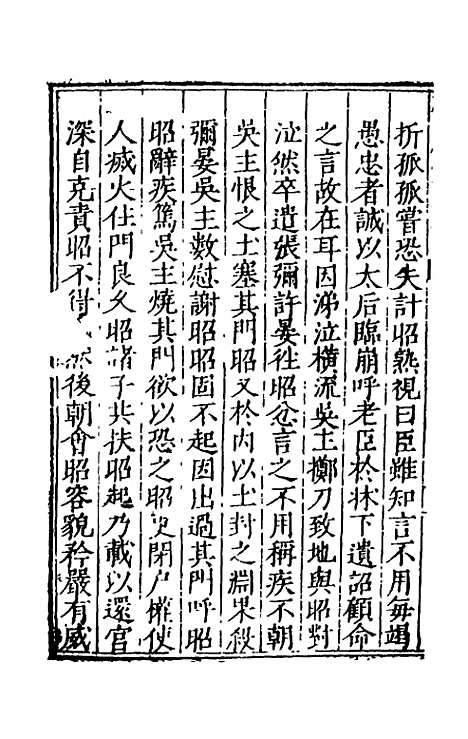 折孤孤嘗恐失計昭熟視曰臣雖知言不用每竭
愚忠者誠以太后臨崩呼老臣於牀下遺詔顧命
之言故在耳因涕泣橫流吳主擲刀致地與昭對
泣然卒遣張彌許晏往昭忿言之不用稱疾不朝
吳主恨之土塞其門昭又於內以土封之淵果殺
彌晏吳主數慰謝昭昭固不起因出過其門呼昭
昭辭疾篤吳主燒其門欲以恐之昭更閉户權使
人滅火住門良久昭諸子共扶昭起乃載以還宫
深自克責昭不得然後朝會昭容貌矜嚴有威